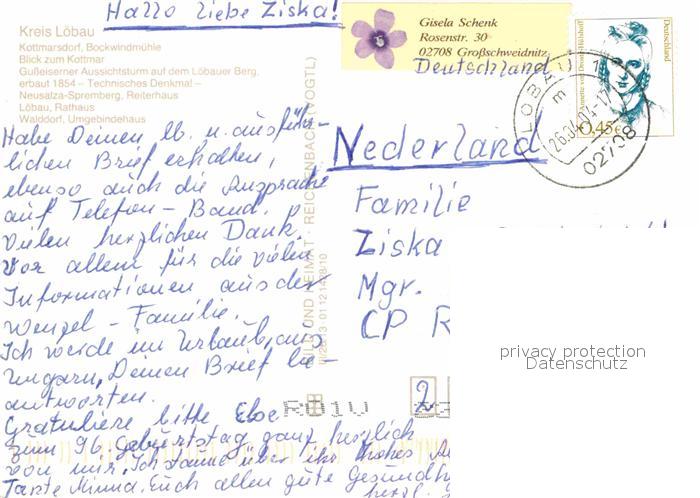 Hallo liebe Ziska!
Kreis Löbau
Kottmarsdorf, Bockwindmühle
Blick zum Kottmar
Gußeiserner Aussichtsturm auf dem Löbauer Berg,
erbaut 1854 – Technisches Denkmal –
Neusalza-Spremberg, Reiterhaus
Löbau, Rathaus
Walddorf, Umgebindehaus
Habe Deinen lb. u. ausführ-
lichen Brief erhalten,
ebenso auch die Ansprache
auf Telefon-Band.
Vielen herzlichen Dank.
Vor allem für die vielen
Informationen aus der
Wenzel-Familie.
Ich werde im Urlaub, aus
Ungarn, Deinen Brief be-
antworten.
Gratuliere bitte Else
zum 96. Geburtstag ganz herzlich
von mir. Ich staune über ihr hohes
Tante Minna. Euch allen gute
herzl.
BILD UND HEIMAT · REICHENBACH (VOGTL)
Gisela Schenk
Rosenstr. 30
02708 Großschweidnitz
Deutschland
Deutschland
Annette von Droste-Hülshoff
0,45€
LÖBAU 1
m
26.04.04-17
02708
Nederland
Familie
Ziska
Mgr.
CP R
2
privacy protection
Datenschutz